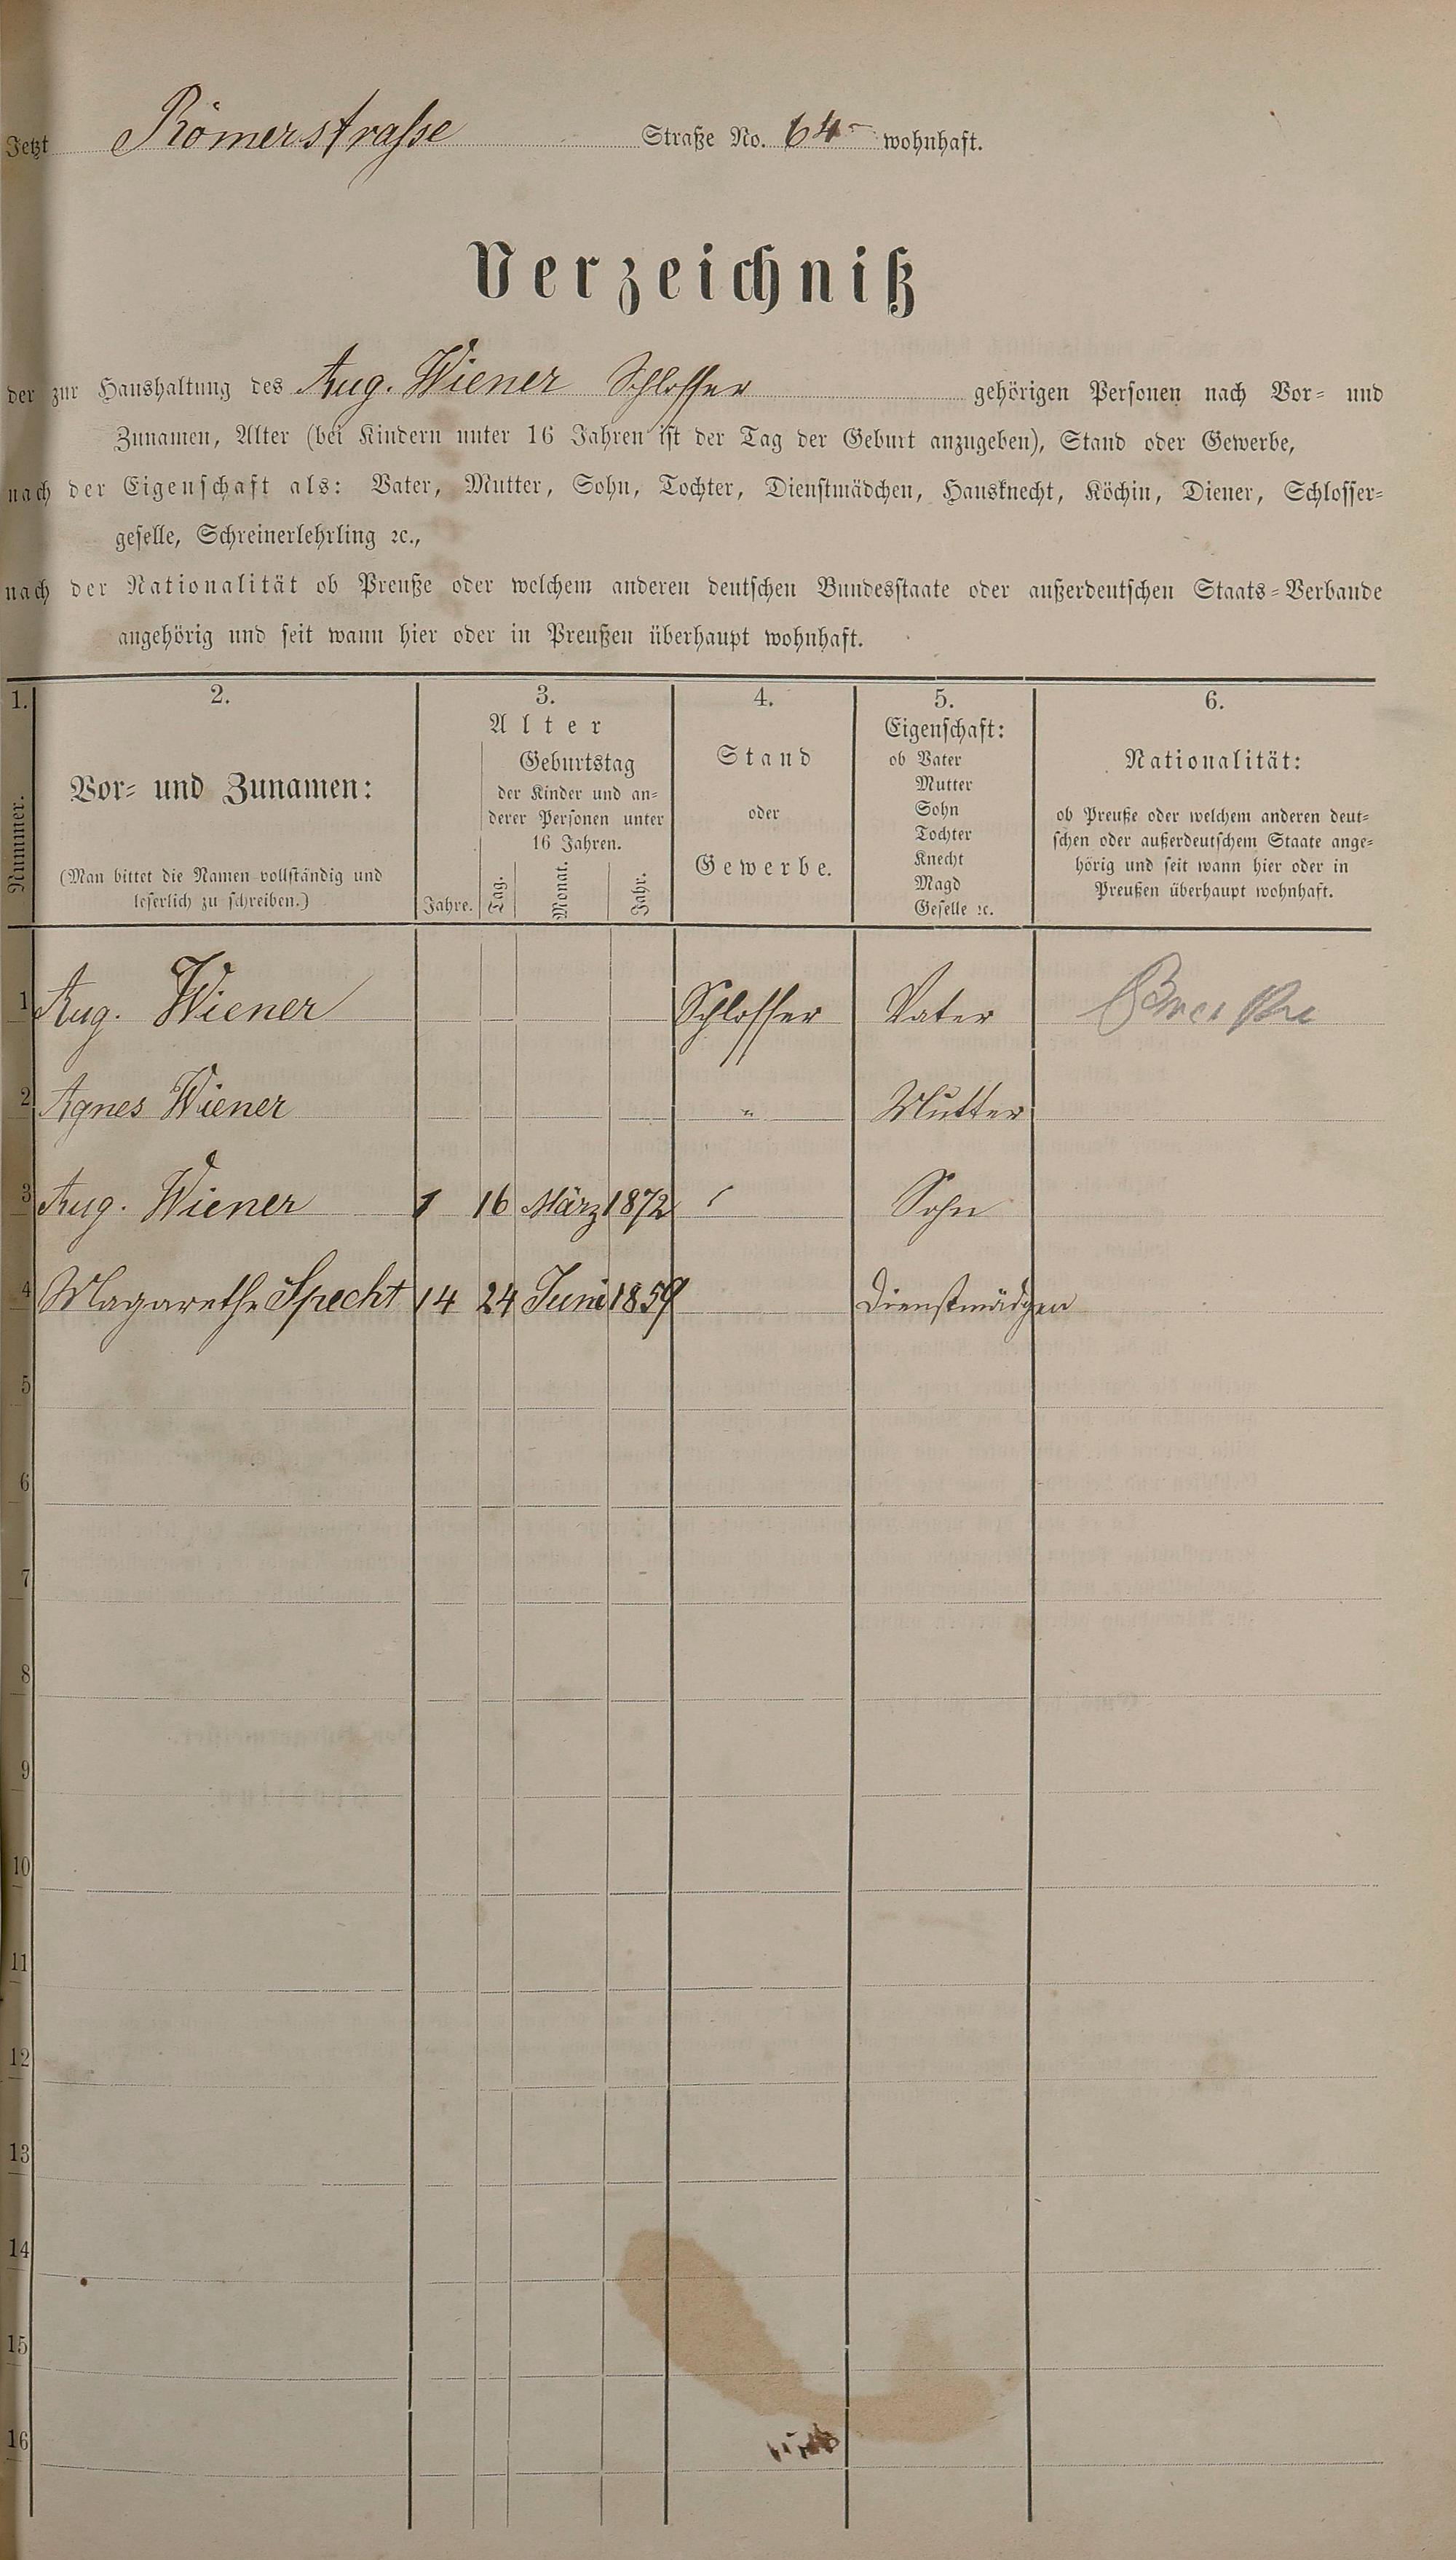 Jetzt Römerstrasse Straße No. 64 wohnhaft.
Verzeichniß
der zur Haushaltung des Aug. Wiener Schlosser gehörigen Personen nach Vor- und
Zunamen, Alter (bei Kindern unter 16 Jahren ist der Tag der Geburt anzugeben), Stand oder Gewerbe,
nach der Eigenschaft als: Vater, Mutter, Sohn, Tochter, Dienstmädchen, Hausknecht, Köchin, Diener, Schlosser-
geselle, Schreinerlehrling ꝛc.,
nach der Nationalität ob Preuße oder welchem anderen deutschen Bundesstaate oder außerdeutschen Staats-Verbande
angehörig und seit wann hier oder in Preußen überhaupt wohnhaft.
1.
Nummer.
2.
Vor- und Zunamen:
(Man bittet die Namen vollständig und
leserlich zu schreiben.)
3.
Alter
Jahre.
Geburtstag
der Kinder und an-
derer Personen unter
16 Jahren.
Tag. Monat. Jahr.
4.
Stand
oder
Gewerbe.
5.
Eigenschaft:
ob Vater
Mutter
Sohn
Tochter
Knecht
Magd
Geselle ꝛc.
6.
Nationalität:
ob Preuße oder welchem anderen deut-
schen oder außerdeutschem Staate ange-
hörig und seit wann hier oder in
Preußen überhaupt wohnhaft.
1 Aug. Wiener Schlosser Vater
2 Agnes Wiener " Mutter
3 Aug. Wiener 1 16 März 1872 Sohn
4 Magarethe Specht 14 24 Juni 1859 Dienstmädgen
5
6
7
8
9
10
11
12
13
14
15
16